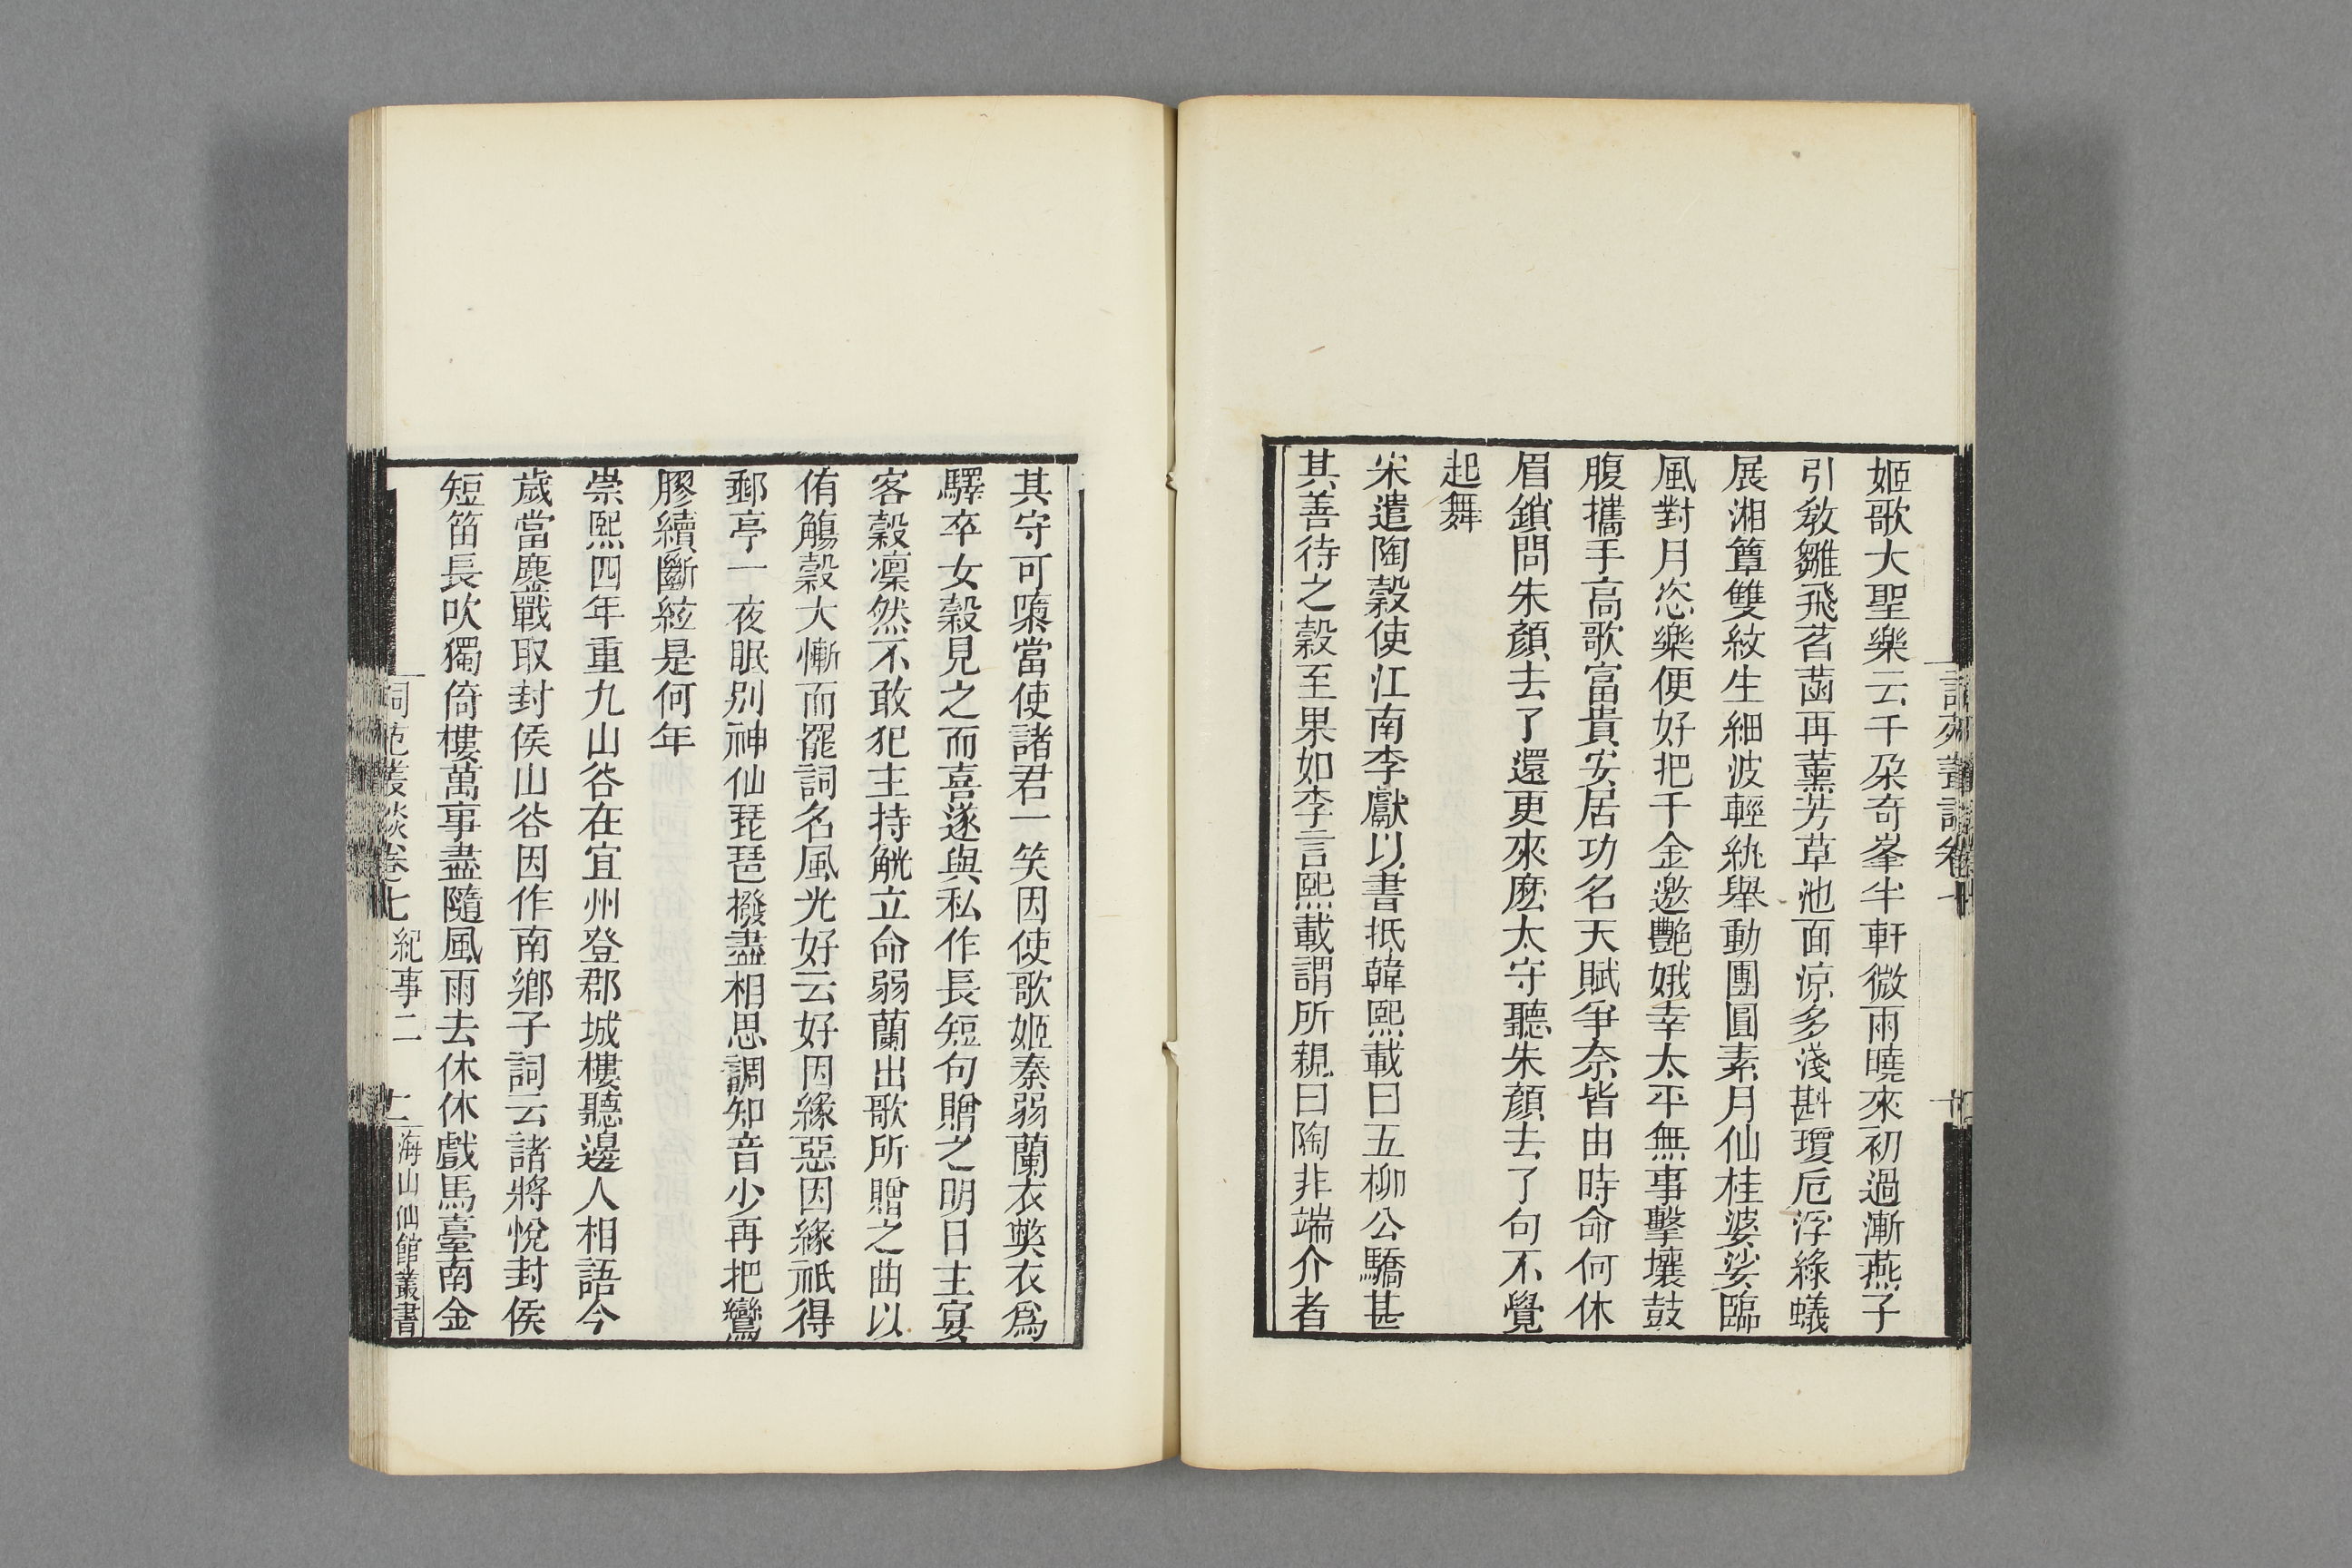 姬歌大聖樂云千朶奇峯半軒微雨曉來初過漸燕子
引敎雛飛菡萏再薰芳草池面涼多淺斟瓊卮浮綠蟻
展湘簟雙紋生細波輕紈舉動團圓素月仙桂婆娑臨
風對月恣樂便好把千金邀艷娥幸太平無事擊壤鼓
腹攜手高歌富貴安居功名天賦爭奈皆由時命何休
眉鎖問朱顏去了還更來麽太守聽朱顏去了句不覺
起舞
宋遣陶穀使江南李獻以書抵韓熙載曰五柳公驕甚
其善待之穀至果如李言熙載謂所親曰陶非端介者
其守可隳當使諸君一笑因使歌姬秦弱蘭衣獘衣爲
驛卒女穀見之而喜遂與私作長短句贈之明日主宴
客穀凜然不敢犯主持觥立命弱蘭出歌所贈之曲以
侑觴穀大慚而罷詞名風光好云好因緣惡因緣祇得
郵亭一夜眠別神仙琵琶撥盡相思調知音少再把鸞
膠續斷絃是何年
崇熙四年重九山谷在宜州登郡城樓聽邊人相語今
歲當鏖戰取封侯山谷因作南鄉子詞云諸將悅封侯
短笛長吹獨倚樓萬事盡隨風雨去休休戲馬臺南金
詞苑叢談卷七 紀事二 海山仙館叢書